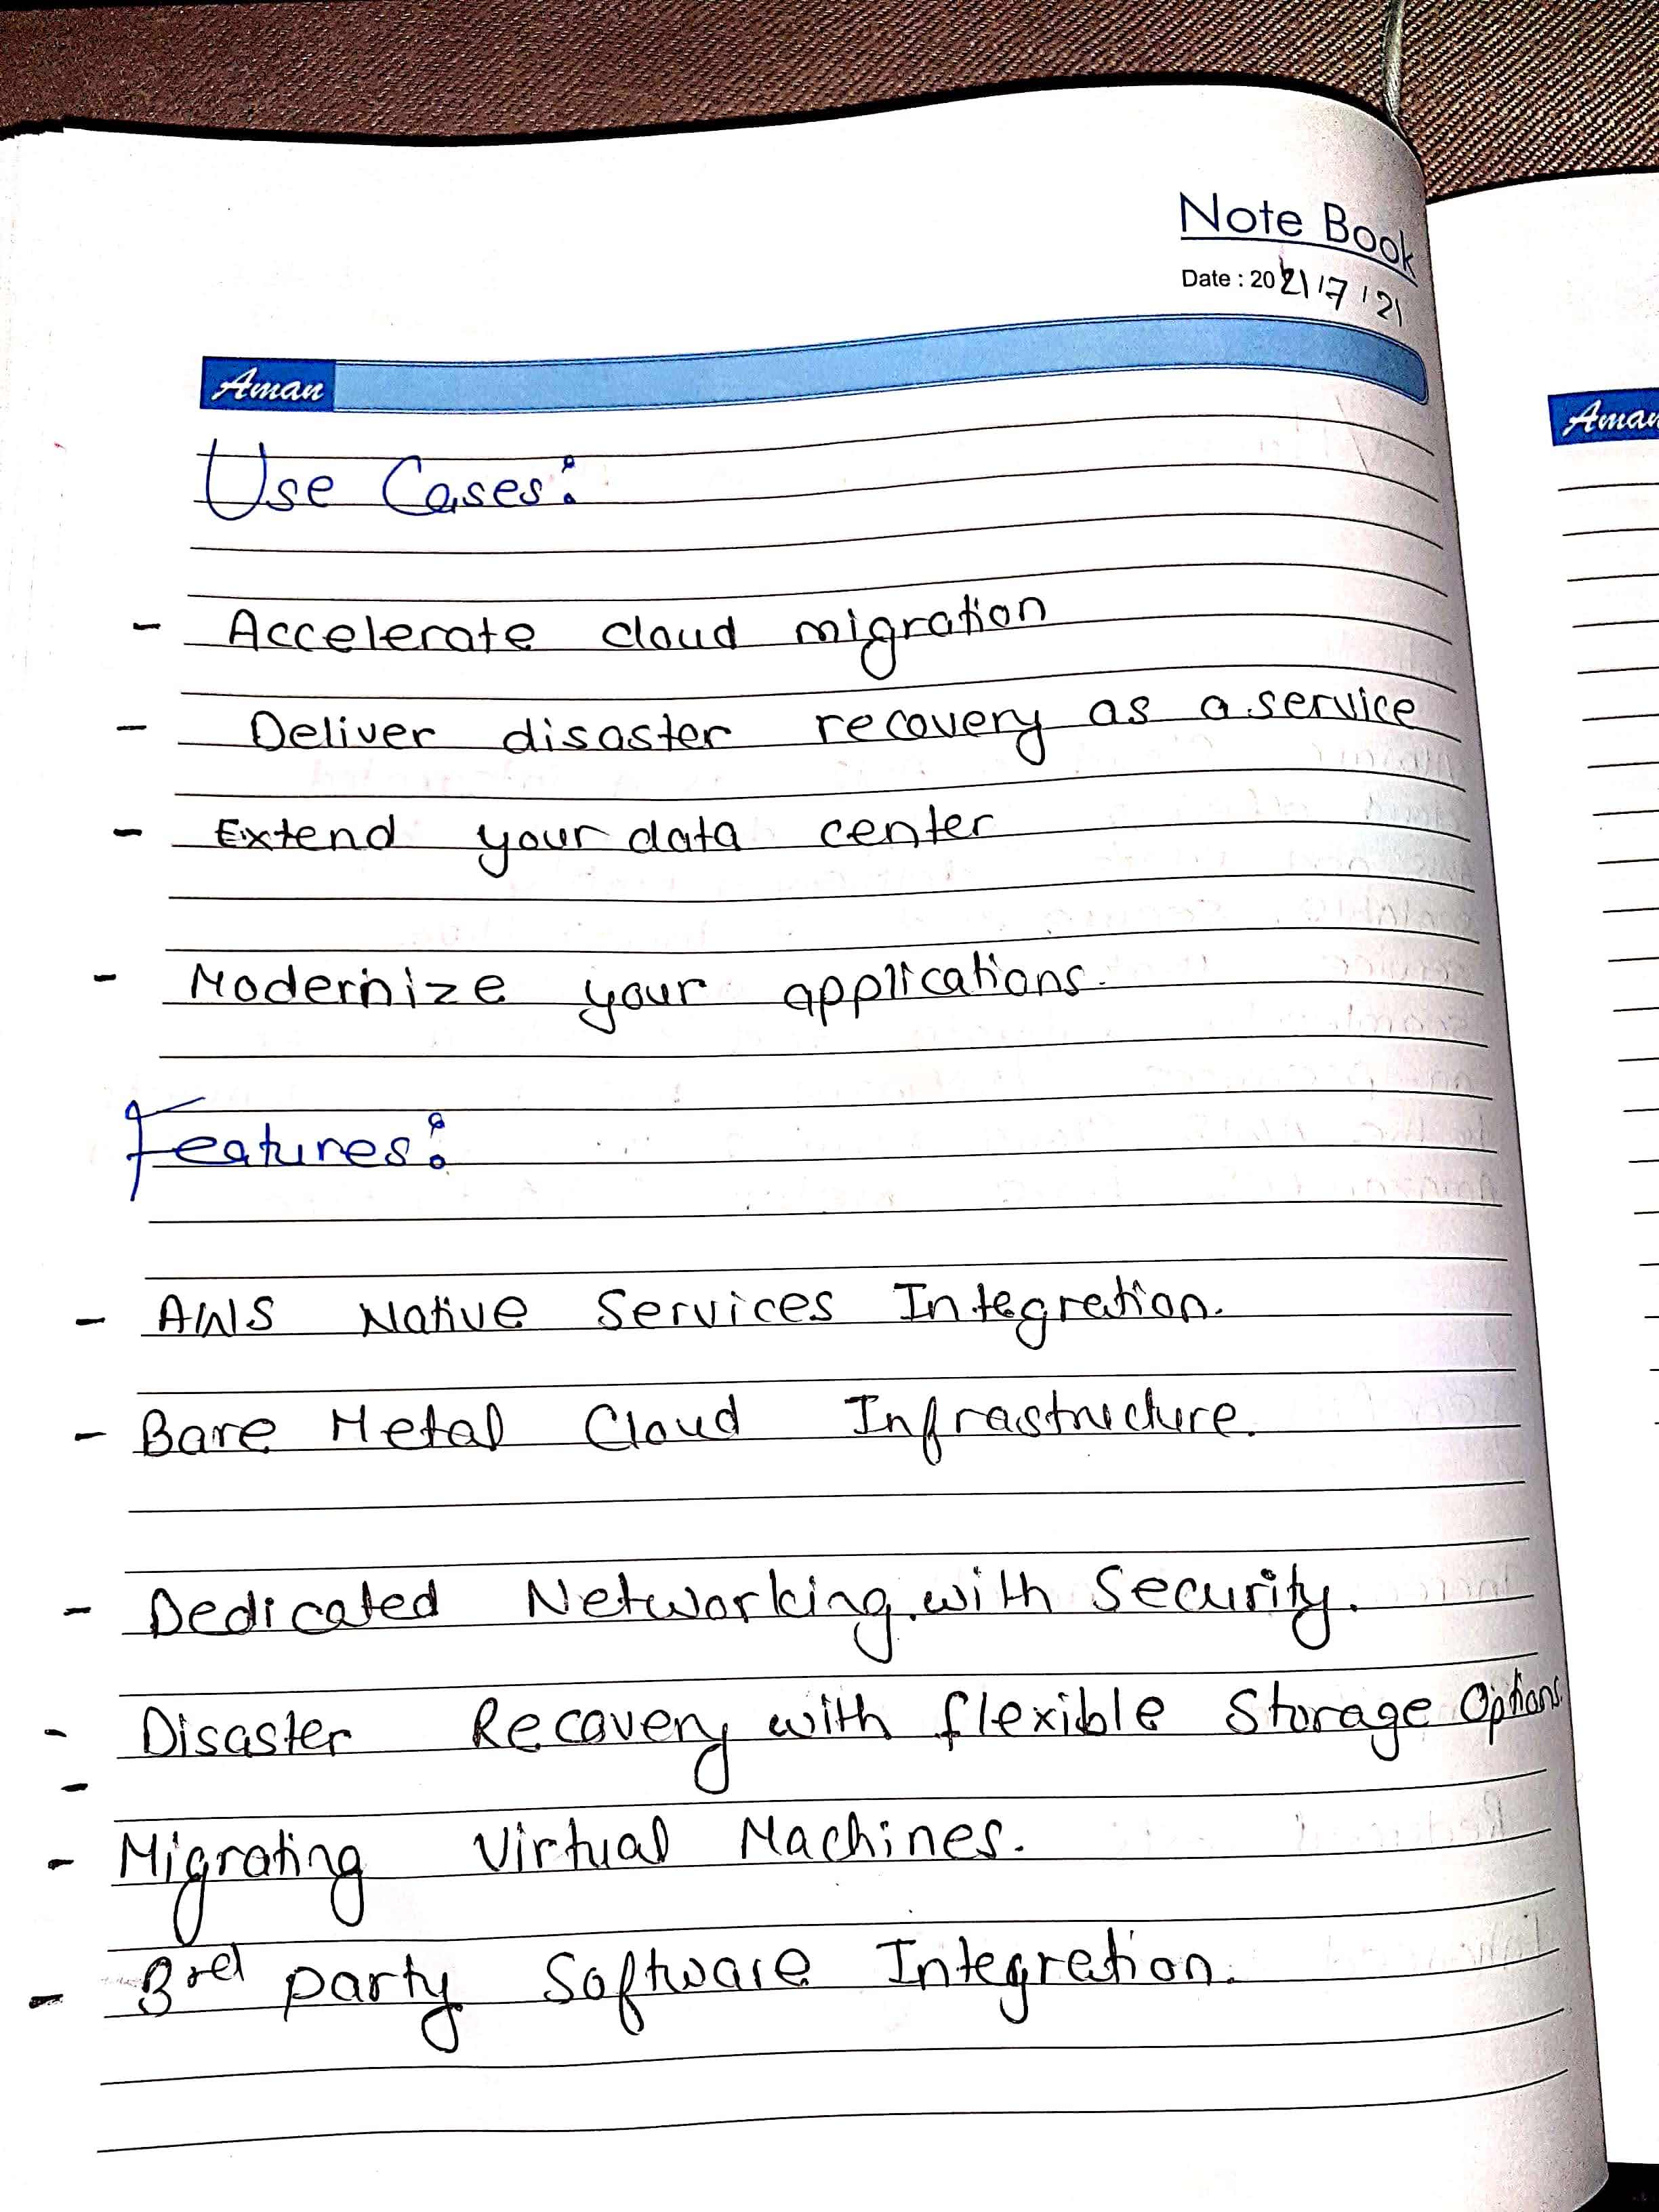 Note Book
Date : 2021/7/21
Aman
Aman
Use Cases:
- Accelerate cloud migration
- Deliver disaster recovery as a service
- Extend your data center
- Modernize your applications.
Features:
- AWS Native Services Integration.
- Bare Metal Cloud Infrastructure.
- Dedicated Networking with Security.
- Disaster Recovery with flexible Storage Options.
-
- Migrating Virtual Machines.
- 3rd party Software Integration.